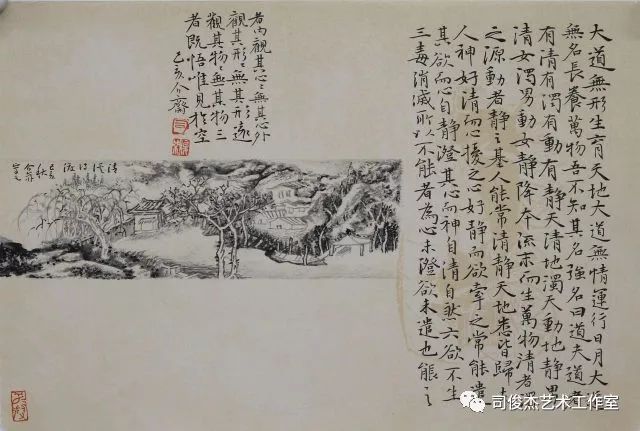 大道無形生育天地大道無情運行日月大道
無名長養萬物吾不知其名強名曰道夫道者
有清有濁有動有靜天清地濁天動地靜男
清女濁男動女靜降本流末而生萬物清者
之源動者靜之基人能常清靜天地悉皆歸
人神好清而心擾之心好靜而欲牽之常能遣
其欲而心自靜澄其心而神自清自然六欲不生
三毒消滅所以不能者為心未澄欲未遣也能之
者內觀其心〻無其心外
觀其形〻無其形遠
觀其物〻無其物三
者既悟唯見於空
己亥介齋
己亥
秋
司俊杰艺术工作室